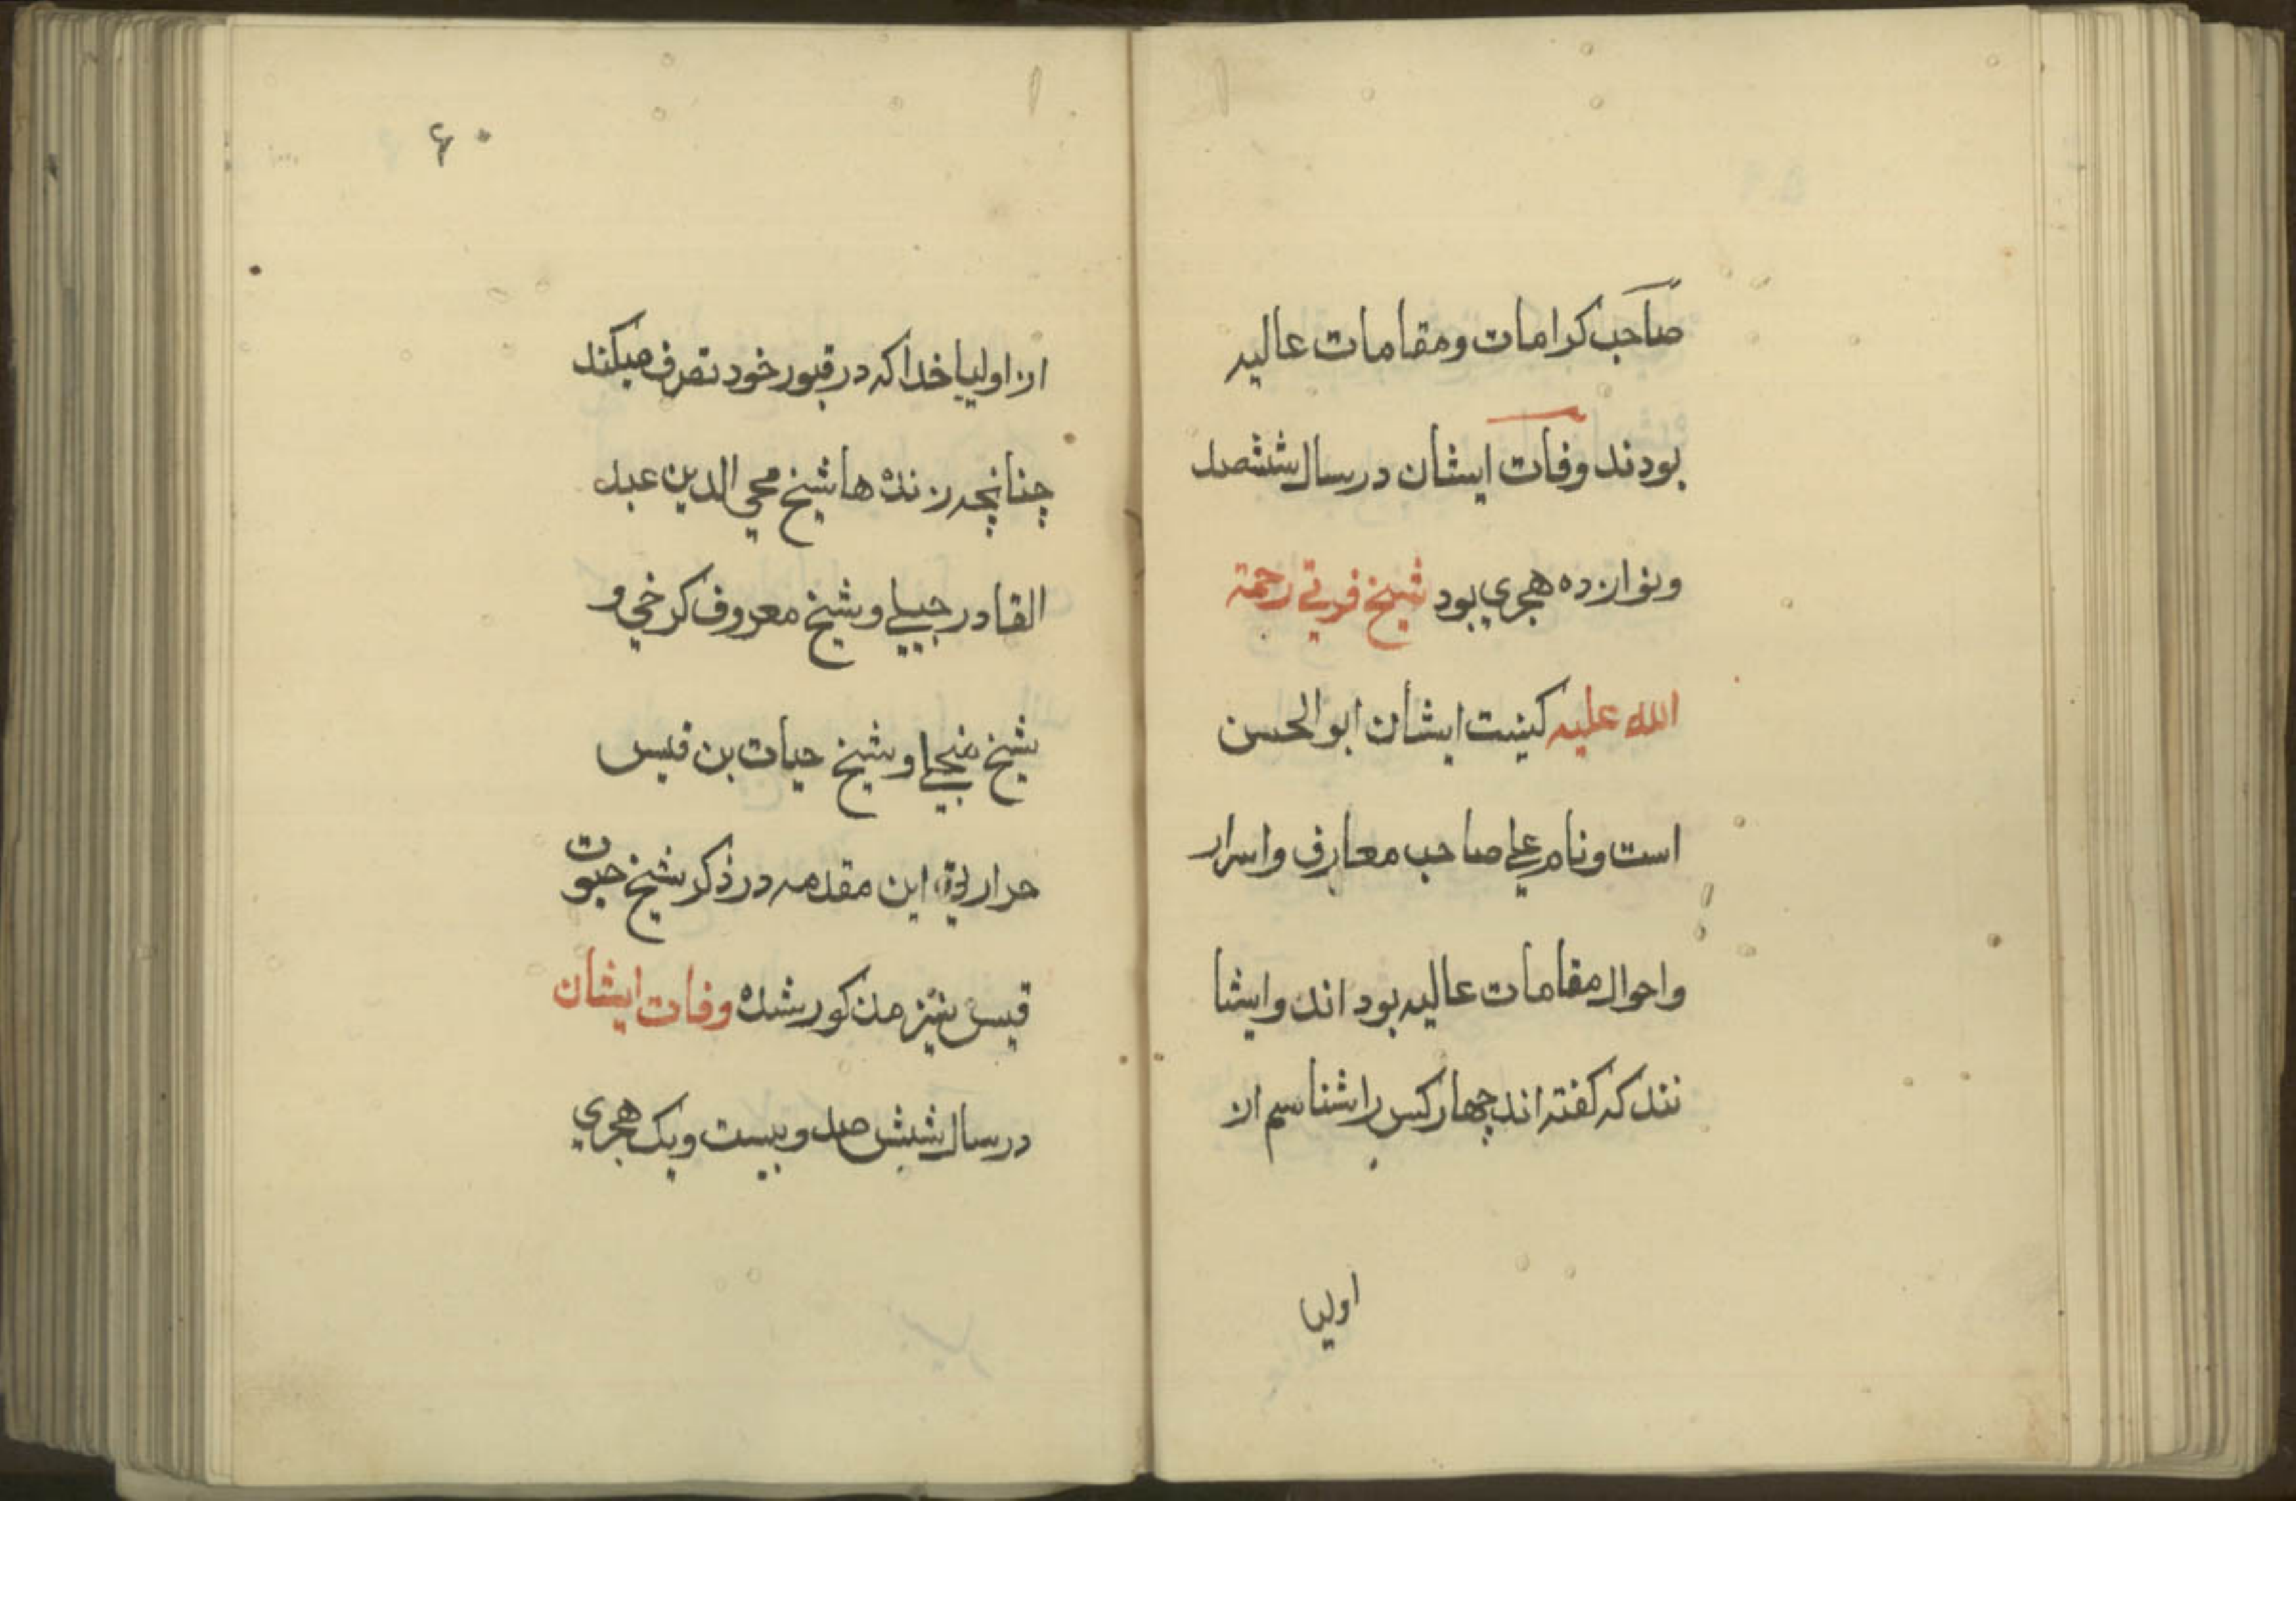 صاحب کرامات ومقامات عالیه
بودند وفات ایشان درسال ششصد
ونوازده هجري بود شیخ فرتي رحمة
الله علیه کینت ایشان ابوالحسن
است ونام علي صاحب معارف واسرار
واحوال مقامات عالیه بود اند وایشا
نند که کفته اند چهار کس را شناسم از
اولیا
۶۰
از اولیا خدا که در قبور خود تصرف میکند
چنانچه زنده ها شیخ محي الدین عبد
القادر جیلي وشیخ معروف کرخي و
شیخ منجي وشیخ حیات بن قیس
حراري این مقدمه در ذکر شیخ حیوت
قیس نیز مذکور شده وفات ایشان
درسال شیش صد وبیست ویک هجري